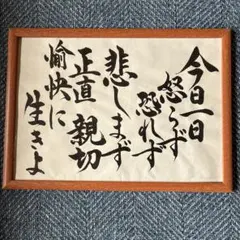 今日一日
怒らず
恐れず
悲しまず
正直 親切
愉快に
生きよ